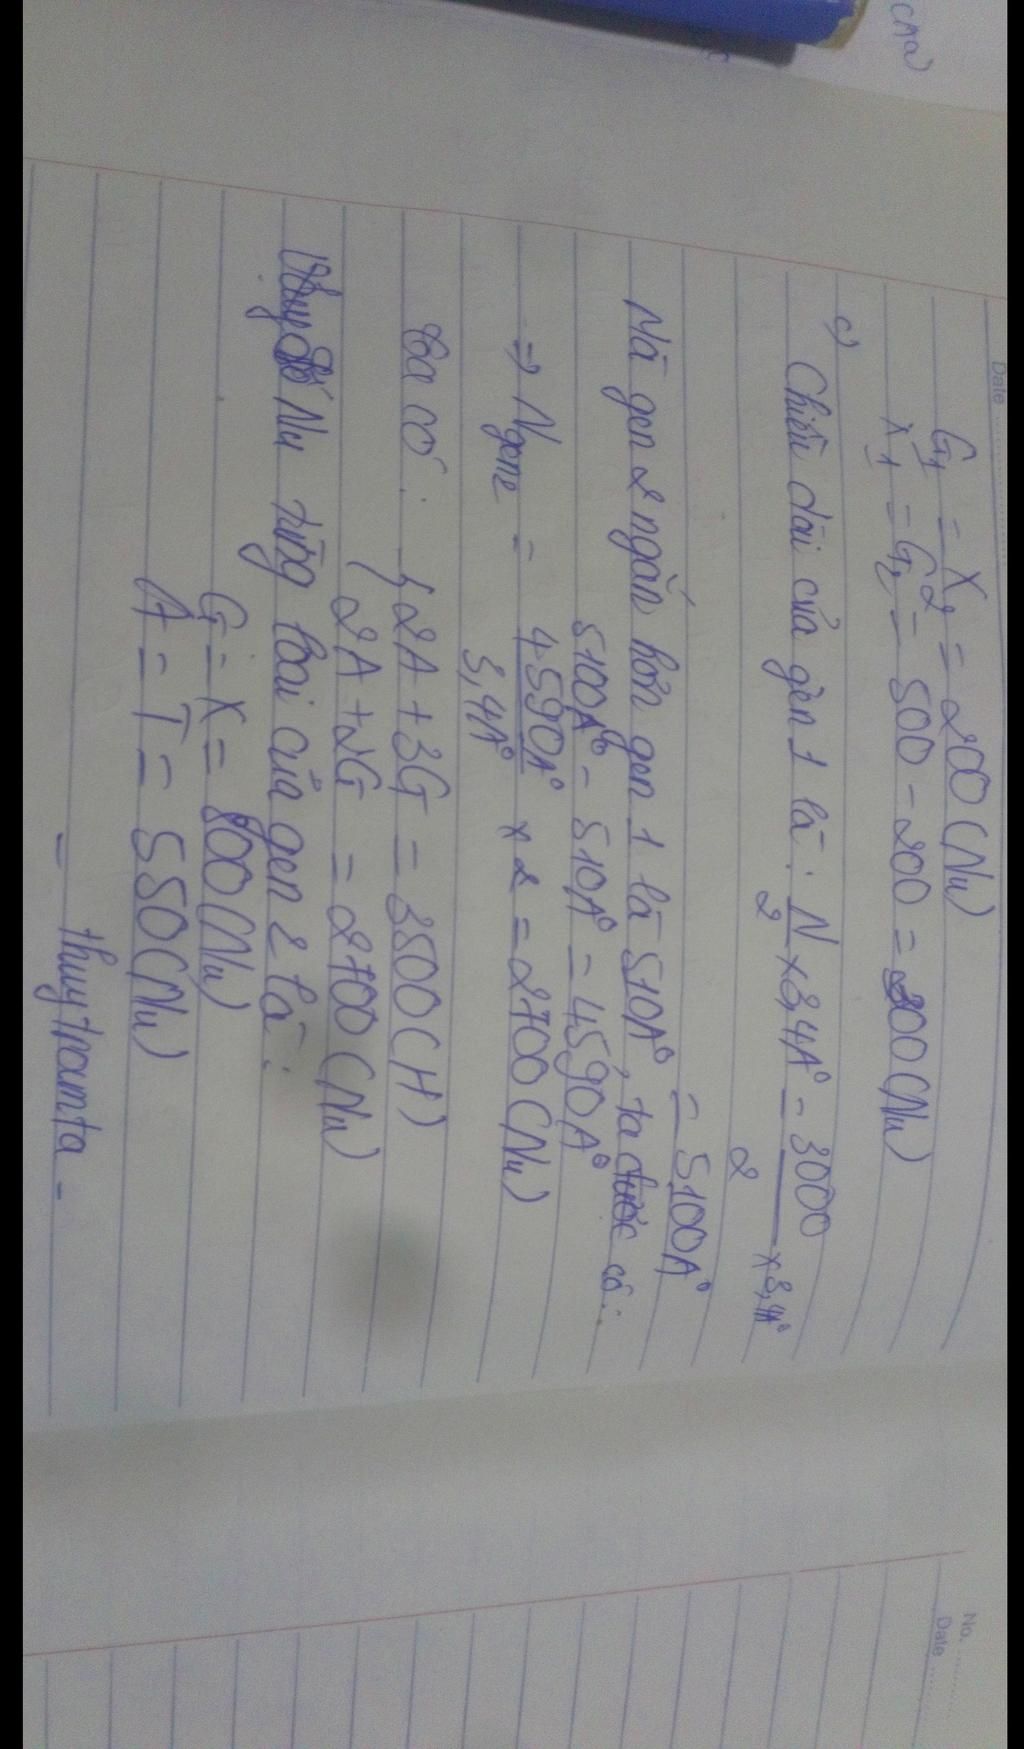 Date
G₁ = X₂ = 200 (Nu)
X₁ = G₂ = 500 - 200 = 300 (Nu)
c) Chiều dài của gen 1 là : N/2 x 3,4A° = 3000/2 x 3,4A°
= 5100A°
Mà gen 2 ngắn hơn gen 1 là 510A°, ta được có :
5100A° - 510A° = 4590A°
=> Ngene = 4590A°/3,4A° x 2 = 2700 (Nu)
Ta có : { 2A + 3G = 3500 (H)
2A + 2G = 2700 (Nu)
Vậy số Nu từng loại của gen 2 là :
G = X = 800 (Nu)
A = T = 550 (Nu)
- thuytramta -
No.
Date